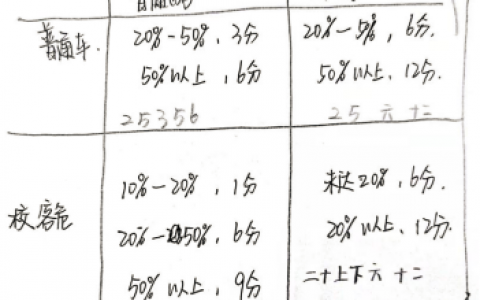 普通车.
20%-50%, 3分
50%以上, 6分
25356
20%-5%, 6分.
50%以上, 12分.
25 六 十二
校客危
10%-20%, 1分
20%-50%, 6分
50%以上, 9分
未达20%, 6分.
20%以上, 12分.
二十上下六 十二